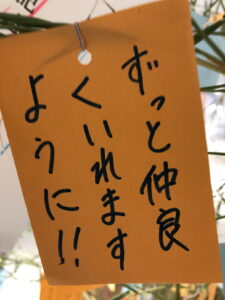 ずっと仲良
くいれます
ように!!